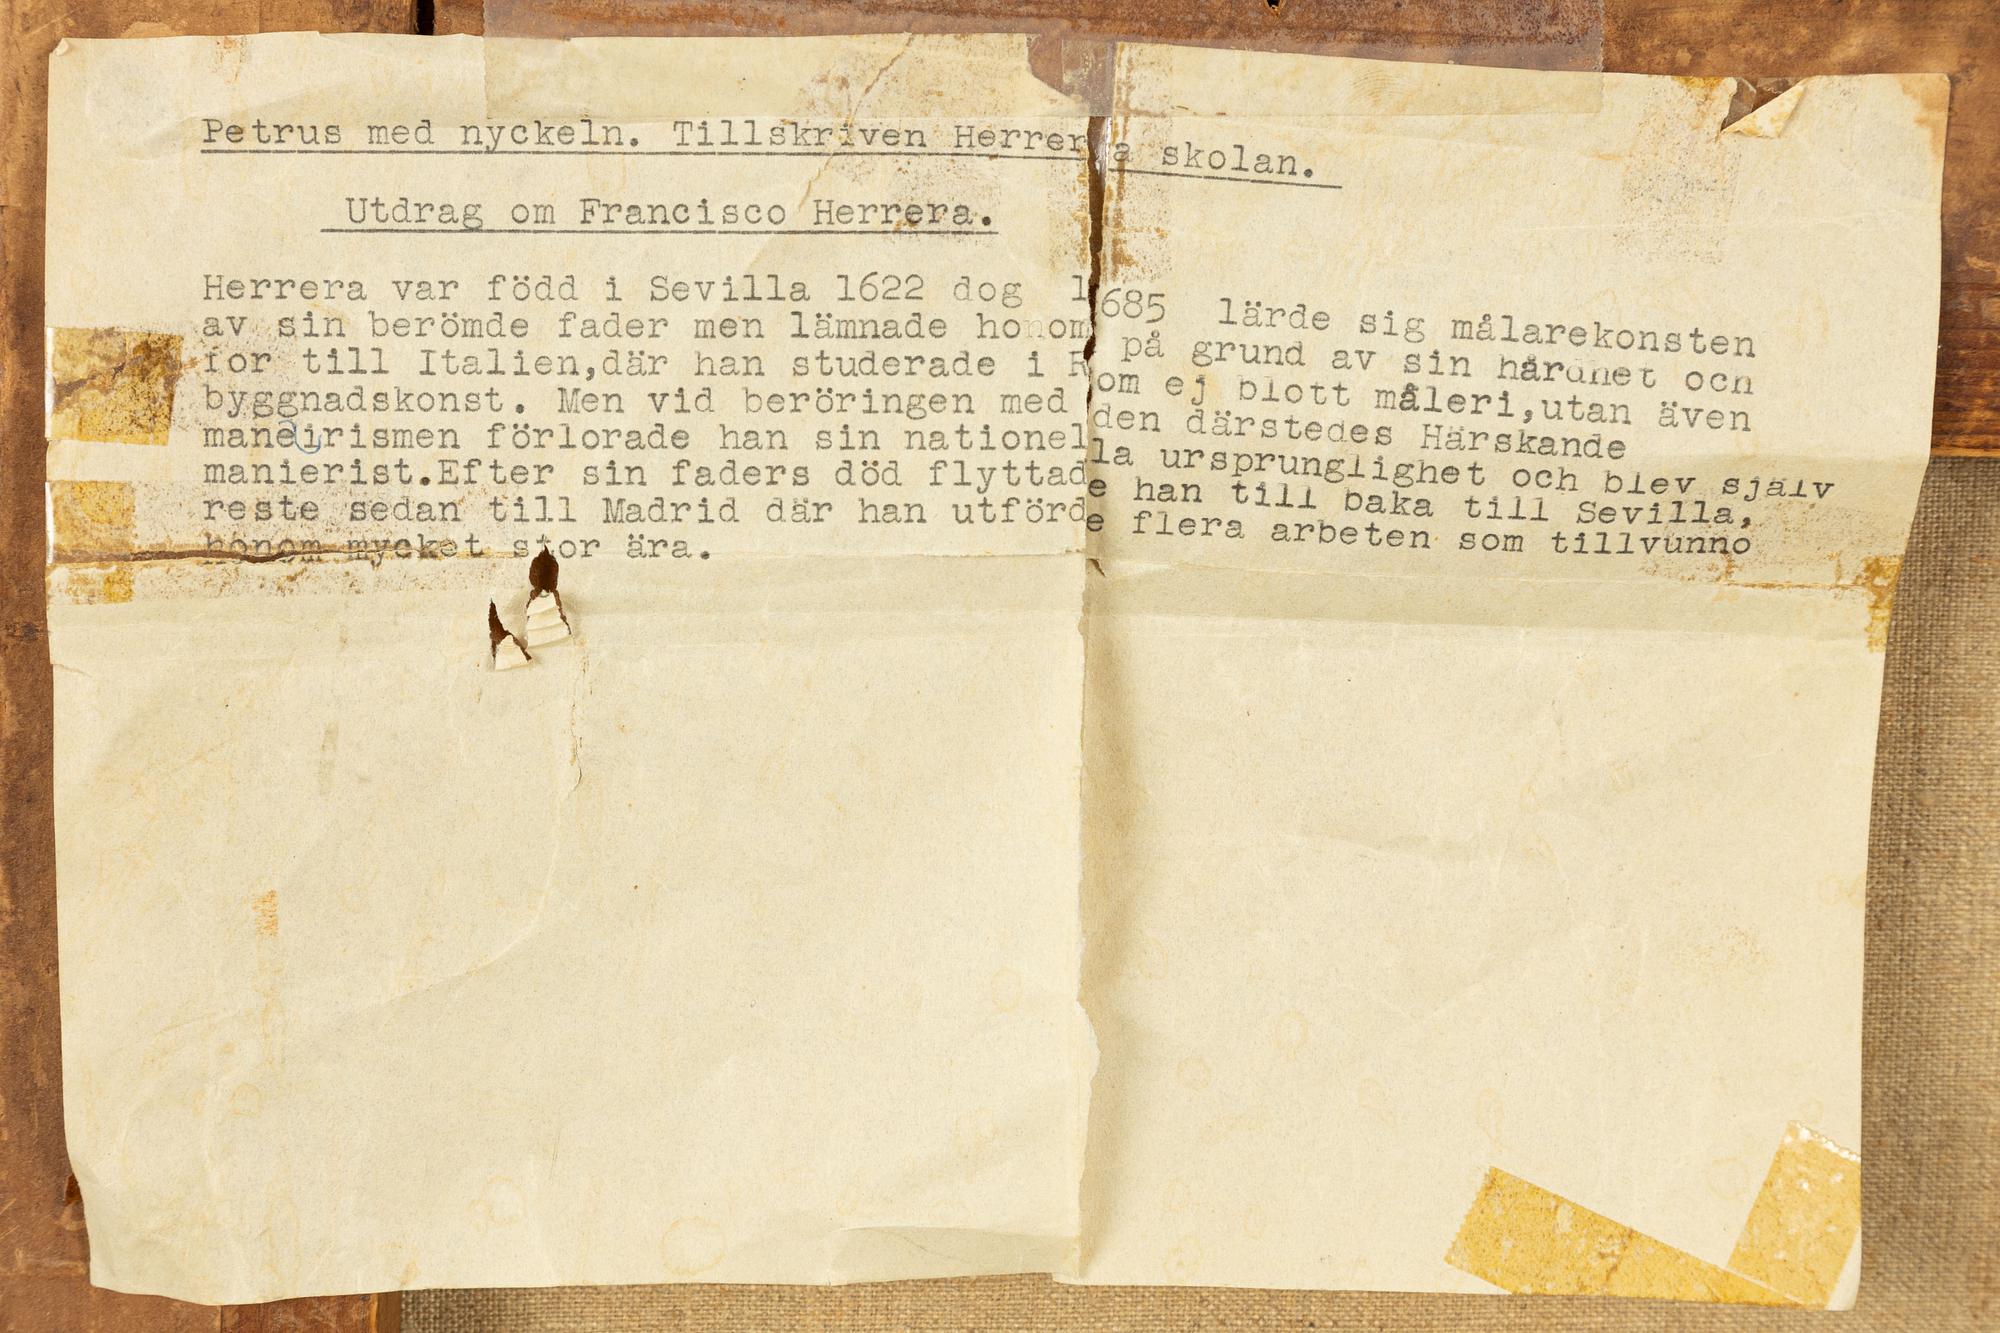 Petrus med nyckeln. Tillskriven Herrera skolan.
Utdrag om Francisco Herrera.
Herrera var född i Sevilla 1622 dog 1685 lärde sig målarekonsten
av sin berömde fader men lämnade honom på grund av sin hårdhet och
for till Italien,där han studerade i Rom ej blott måleri,utan även
byggnadskonst. Men vid beröringen med den därstedes Härskande
maneirismen förlorade han sin nationella ursprunglighet och blev själv
manierist.Efter sin faders död flyttade han till baka till Sevilla,
reste sedan till Madrid där han utförde flera arbeten som tillvunno
honom mycket stor ära.